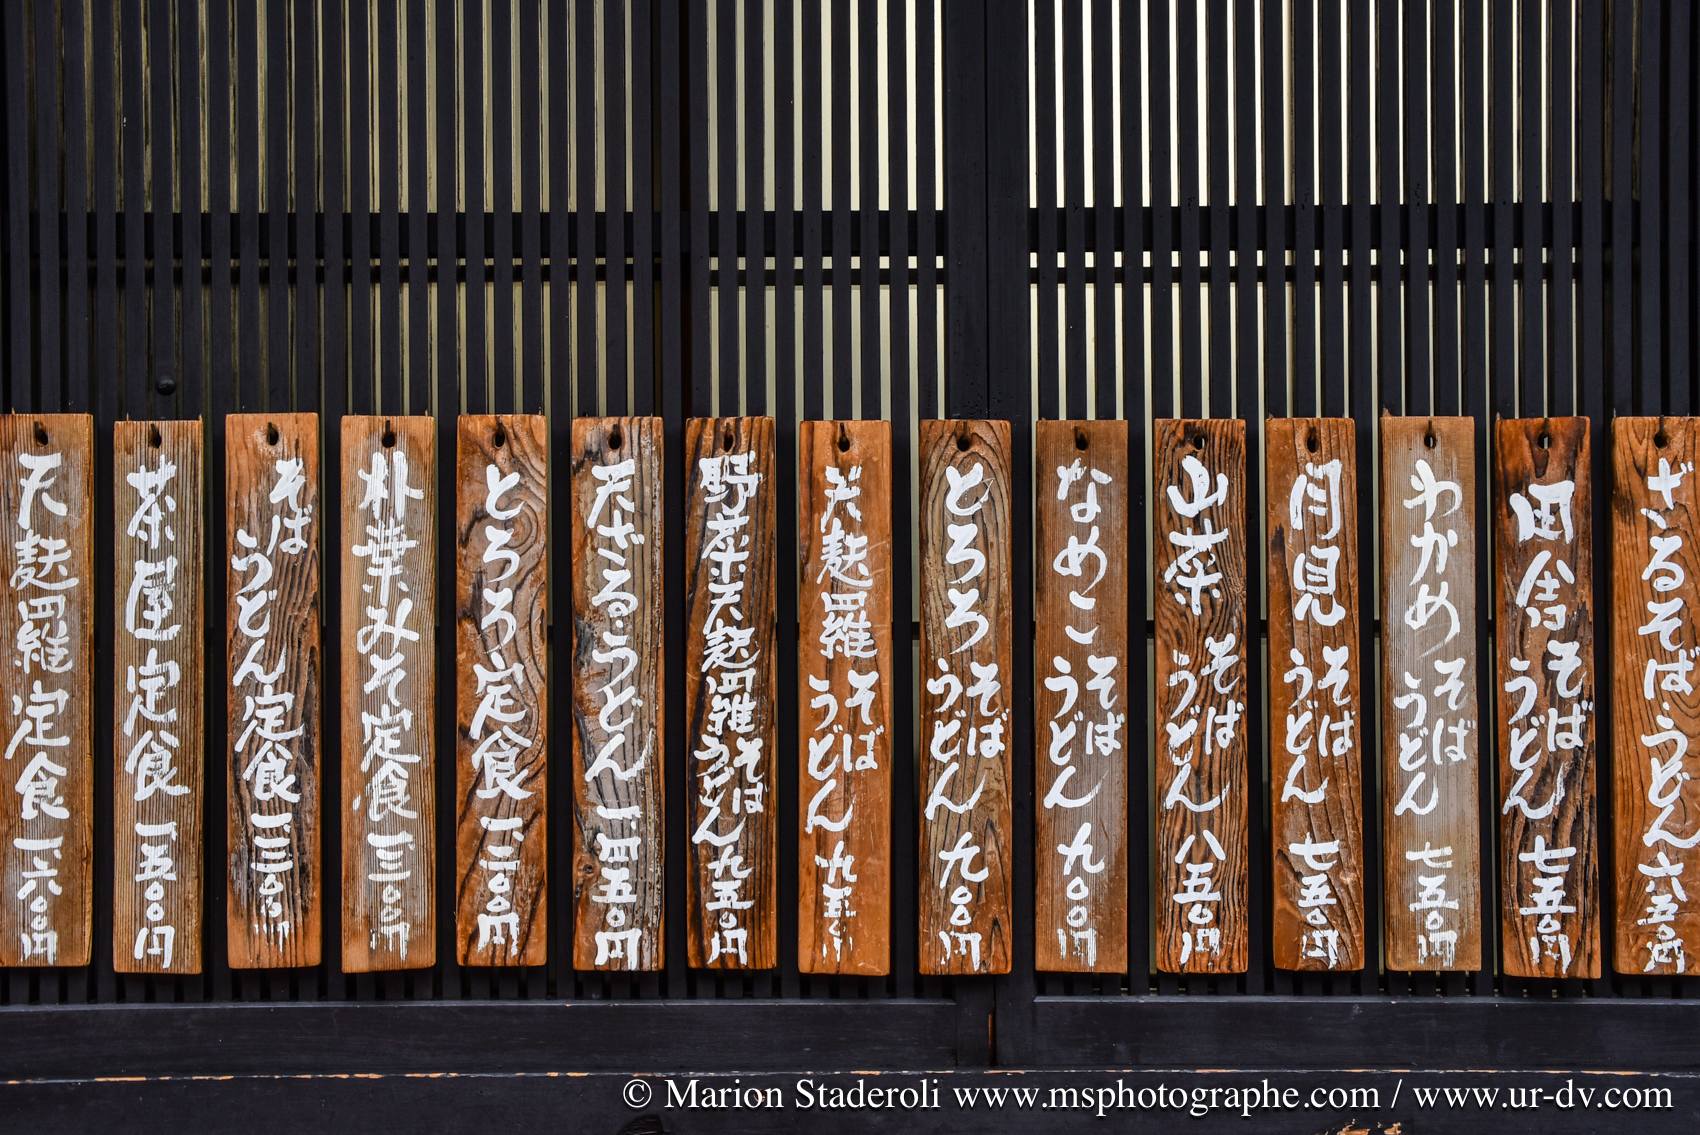 ざるそばうどん六五〇円
田舎そばうどん七五〇円
わかめそばうどん七五〇円
月見そばうどん七五〇円
山菜そばうどん八五〇円
なめこそばうどん九〇〇円
とろろそばうどん九〇〇円
天麩羅そばうどん九五〇円
野菜天麩羅そばうどん九五〇円
天ざる・うどん一、四五〇円
とろろ定食一、二〇〇円
朴葉みそ定食一、三〇〇円
そばうどん定食一、三〇〇円
茶屋定食一、五〇〇円
天麩羅定食一、六〇〇円
© Marion Staderoli www.msphotographe.com / www.ur-dv.com